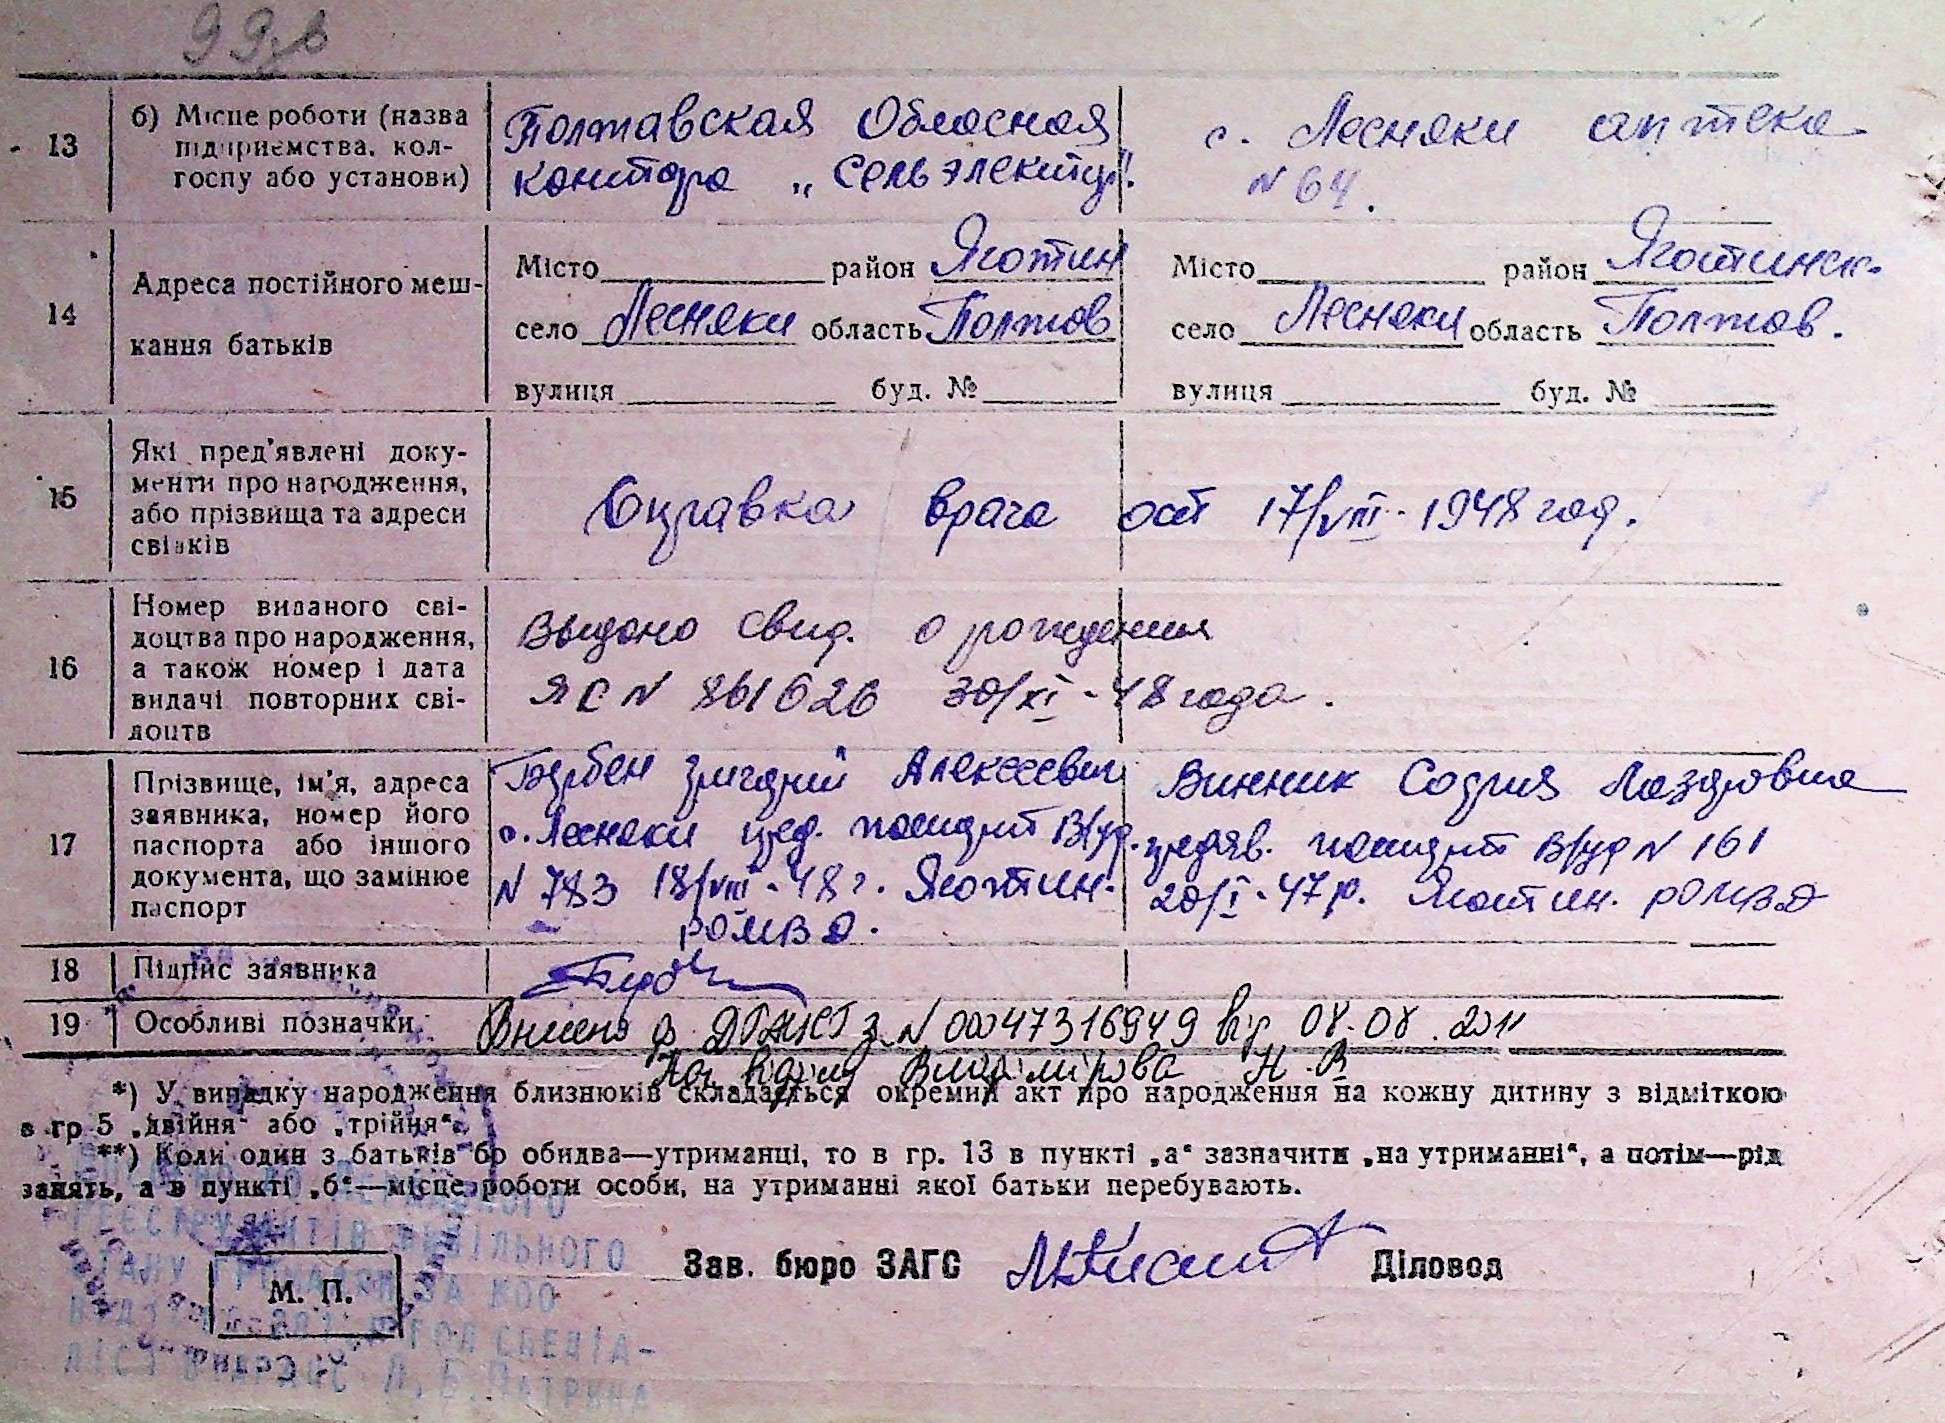 99
13
б) Місце роботи (назва
підприємства, кол-
госпу або установи)
Полтавская Обласная
контора „Сельэлектро".
с. Лесняки аптека
N 64.
14
Адреса постійного меш-
кання батьків
Місто район Яготин
село Лесняки область Полтав
вулиця буд. №
Місто район Яготинск.
село Лесняки область Полтав.
вулиця буд. №
15
Які пред'явлені доку-
менти про народження,
або прізвища та адреси
свідків
Справка врача от 17/VIII - 1948 год.
16
Номер виданого сві-
доцтва про народження,
а також номер і дата
видачі повторних сві-
доцтв
Выдано свид. о рождении
ЯС N 861626 30/XI - 48 года.
17
Прізвище, ім'я, адреса
заявника, номер його
паспорта або іншого
документа, що замінює
паспорт
Григорий Алексеевич
с. Лесняки пред. паспорт В/ур.
N 783 18/VIII - 48 г. Яготин.
РОМВД.
Винник София Лазаровна
предяв. паспорт В/ур N 161
20/I - 47 р. Яготин. РОМВД
18
Підпис заявника
19
Особливі позначки
Внесено до ДРАЦСГ з N 00047316949 від 08.08.2011
Нач. відділу Н.В
*) У випадку народження близнюків складається окремий акт про народження на кожну дитину з відміткою
в гр 5 „двійня" або „трійня".
**) Коли один з батьків бо обидва—утриманці, то в гр. 13 в пункті „а" зазначити „на утриманні", а потім—рід
занять, а в пункті „б"—місце роботи особи, на утриманні якої батьки перебувають.
РЕЄСТРУ АКТІВ ЦИВІЛЬНОГО
СТАНУ ГРОМАДЯН ЗА
СПЕЦІА-
ЛІСТ
М. П.
Зав. бюро ЗАГС
Діловод